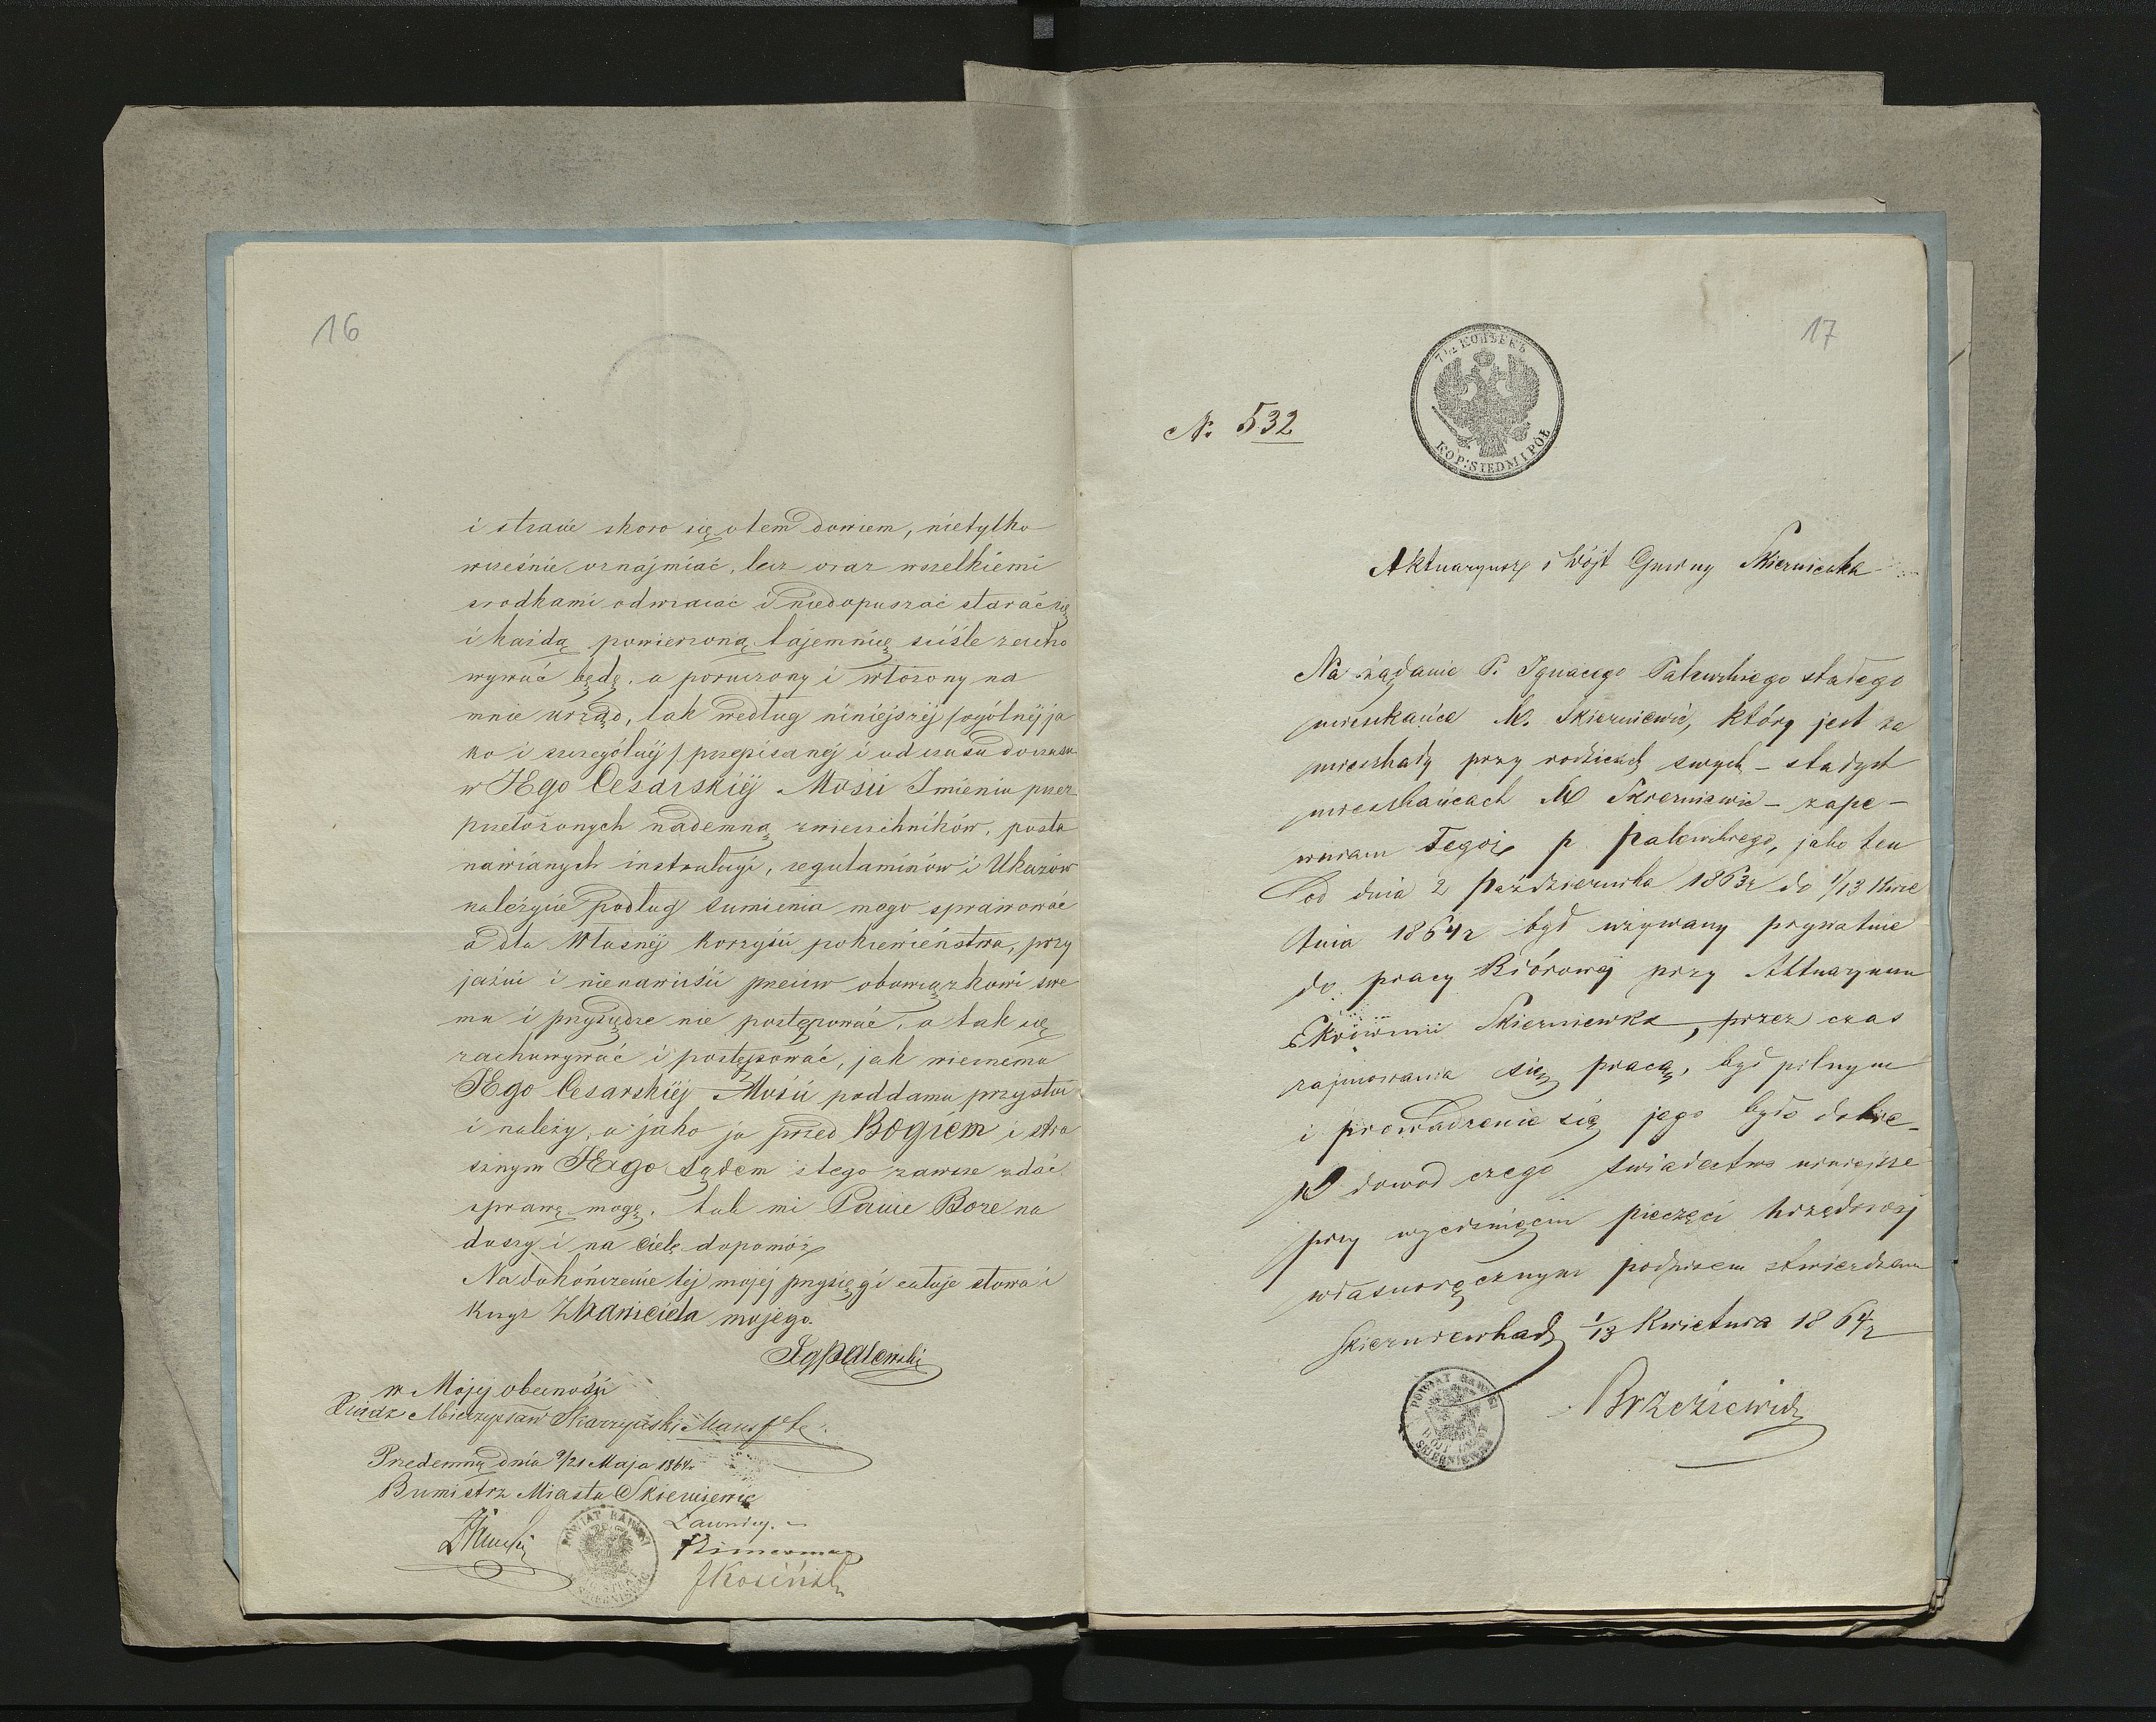 16
i stracie skoro się o tem dowiem, nietylko
wcześnie oznajmiać, lecz oraz wszelkiemi
srodkami odwracać i niedopuszać starać się
i każdą powierzoną tajemnicę sciśle zacho
wywać będę, a poruczony i włożony na
mnie urząd, tak według niniejszéj /ogólnéj ja
ko i szczególnéj/ przepisanéj i od czasu do czasu
w JEgo Cesarskiéj Mości Imieniu przez
przełożonych nademną zwierzchników, posta
nawianych instrukcyi, regulaminów i Ukazów
należycie podług sumienia mego sprawować
a dla Własnéj korzyści pokrewieństwa, przy
jaźni i nienawiści przeciw obowiązkowi swe
mu i przysiędze nie postępować, a tak się
zachowywać i postępować, jak wiernemu
JEgo Cesarskiéj Mości poddamu przystoi
i należy, a jako ja przed Bogiem i stra
sznym JEgo Sądem z tego zawsze zdać
sprawę mogę. tak mi Panie Boże na
duszy i na ciele dopomóż
Na dokończenie téj mojéj przysięgi całuje słowa i
krzyż Zbawiciela mojego.
Ig Palewski
w Mojéj obecności
Ksiądz Mieczysław Skarzyński
Przedemną dnia 9/21 Maja 1864 r
Burmistrz Miasta Skierniewic
Ławnicy
JKosiński
POWIAT RAWSKI
17
7½ КОПѢЕКЪ
KOP: SIEDM I PÓŁ
N. 532
Aktuaryusz i Wójt Gminy Skierniewka
Na żądanie P. Ignacego Palewskiego stałego
mieszkańca M. Skierniewic, który jest za
mieszkały przy rodzicach swych – stałych
mieszkańcach M Skierniewic – zape-
wniam Tegoż p Palewskiego, jako ten
od dnia 2 Października 1863r do 1/13 Kwie
tnia 1864r był używany prywatnie
do pracy Biórowéj przy Aktuaryuszu
Ekonomii Skierniewka, przez czas
zajmowania się pracą, był pilnym
i prowadzenie się jego było dobre_
W dowod czego świadectwo niniejsze
przy wyciśnięciu pieczęci Urzędowej
własnoręcznym podpisem stwierdzam
Skierniewka d 1/13 Kwietnia 1864 r
Brzeziewicz
POWIAT RAWSKI
WÓJT GMINY
SKIERNIEWKA